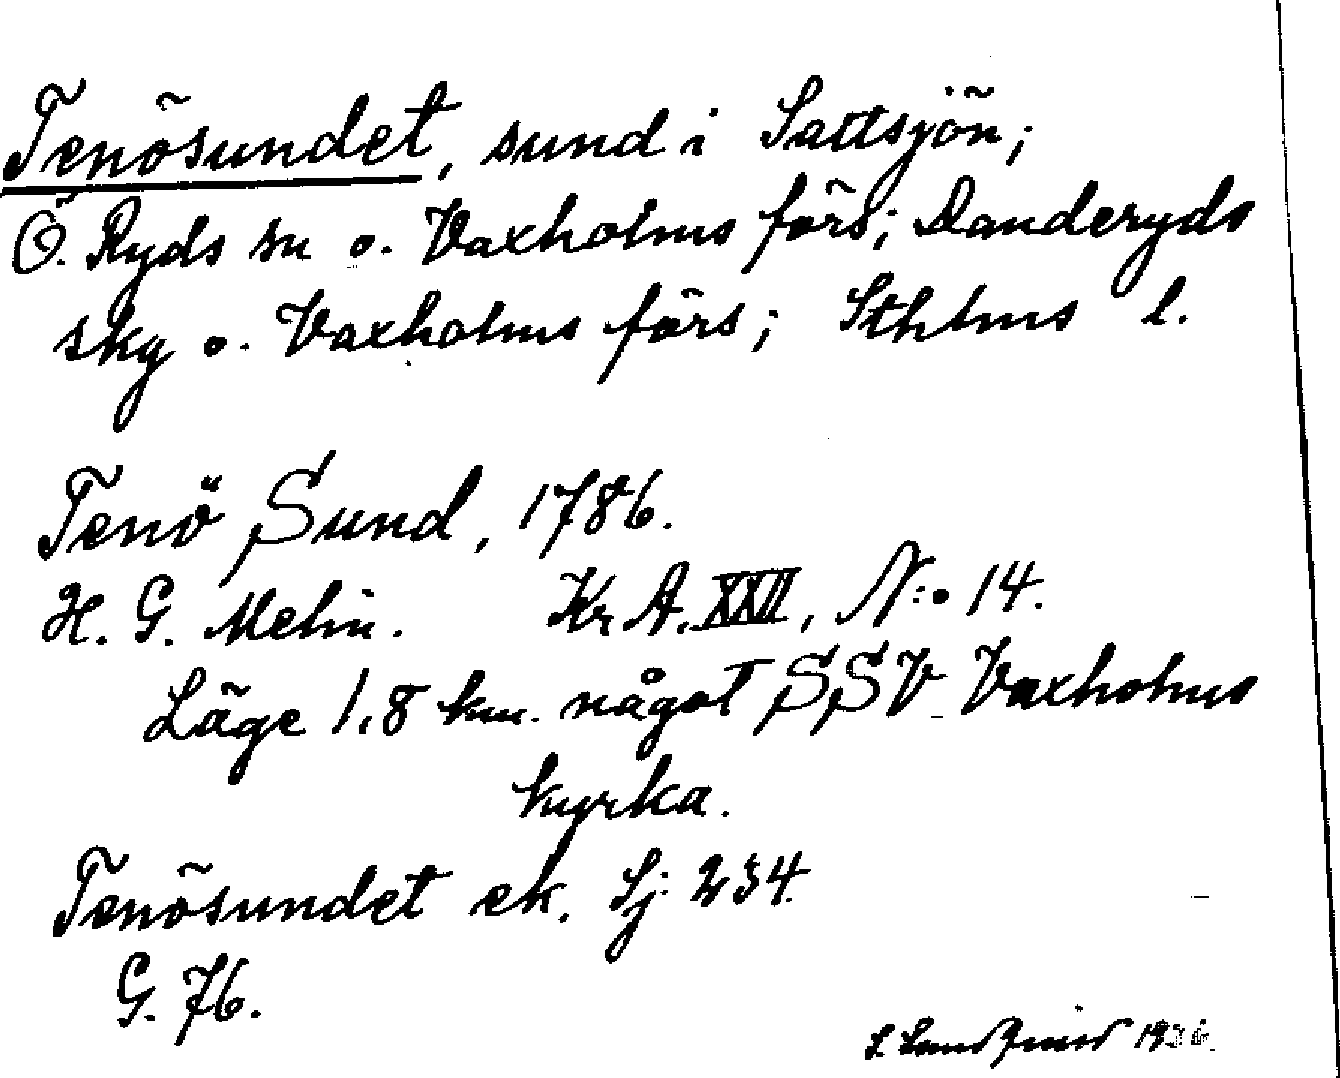 Tenösundet, sund i Saltsjön;
Ö. Ryds sn o. Vaxholms förs; Danderyds
sky o. Vaxholms förs; Sthlms l.
Tenö Sund, 1786.
H. G. Melin. Kr A. XXII, N:o 14.
Läge 1,8 km. något SSV Vaxholms
kyrka.
Tenösundet ek. Sj: 234.
G. 76.
S. 1936.